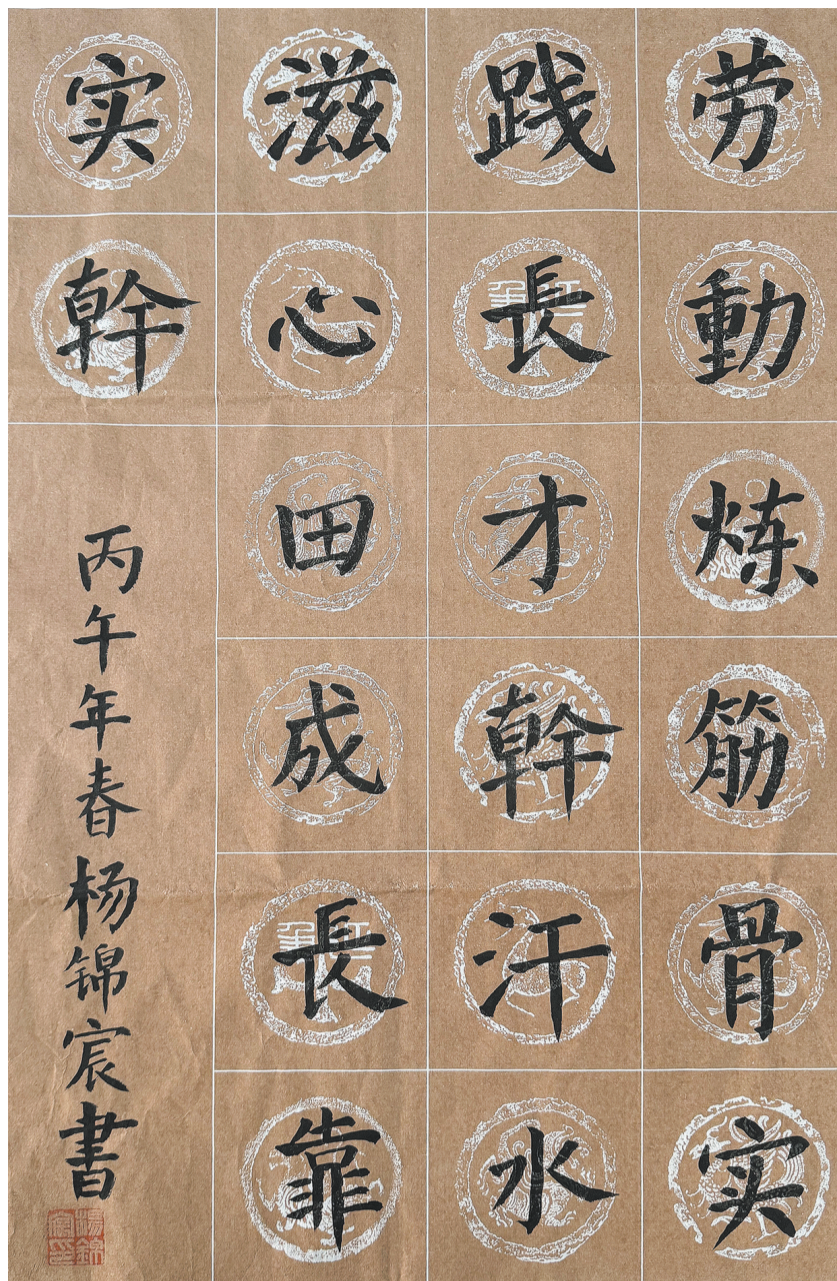 劳動炼筋骨实
践長才幹汗水
滋心田成長靠
实幹
丙午年春杨锦宸書